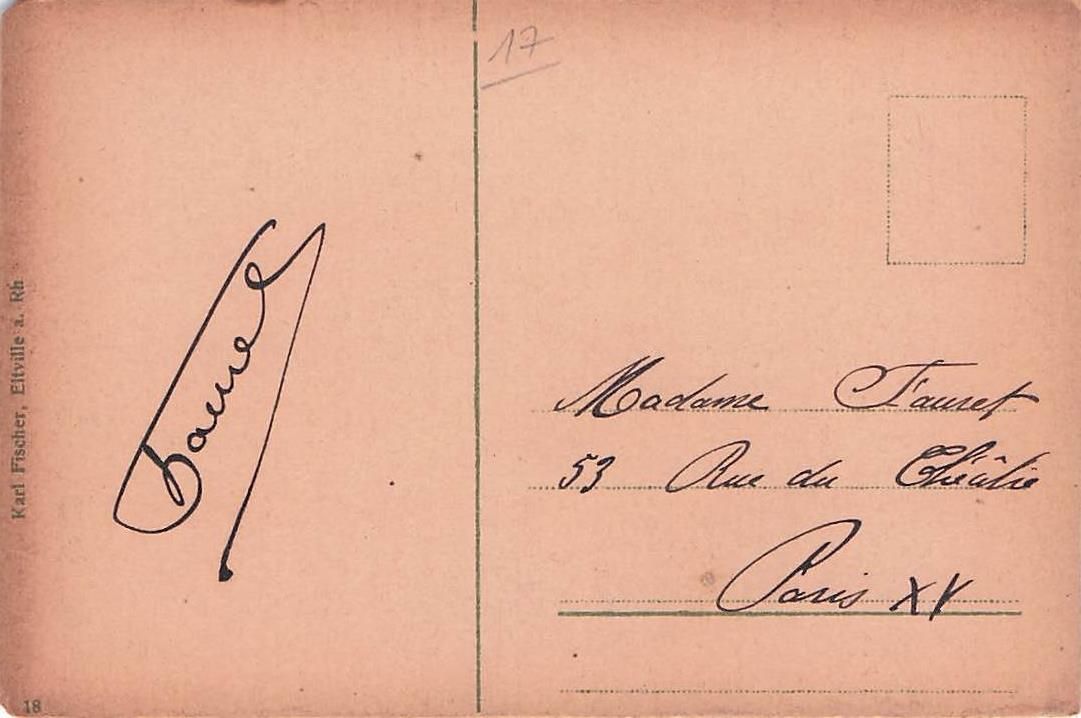 17
Karl Fischer, Eltville a. Rh
18
Madame
53 Rue du Théâtre
Paris XV